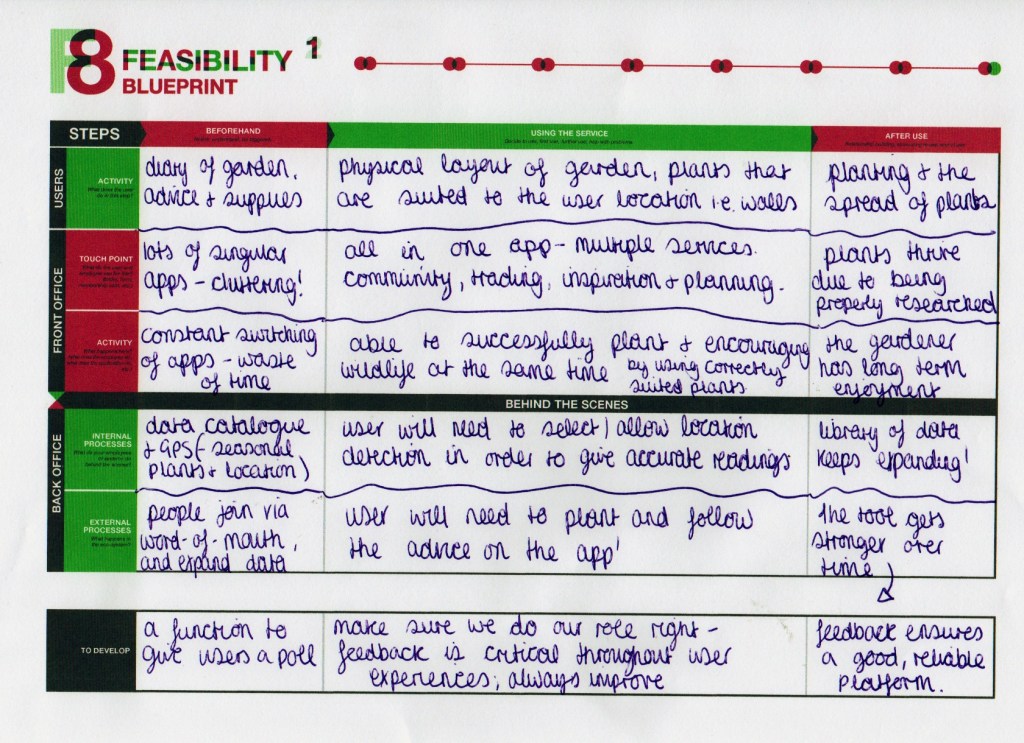 F8 FEASIBILITY 1
BLUEPRINT
STEPS
BEFOREHAND
USING THE SERVICE
AFTER USE
USERS
ACTIVITY
diary of garden,
advice + supplies
physical layout of garden, plants that
are suited to the user location i.e. walls
planting + the
spread of plants
FRONT OFFICE
TOUCH POINT
lots of singular
apps - cluttering!
all in one app - multiple services.
community, trading, inspiration + planning.
plants thrive
due to being
properly researched
ACTIVITY
constant switching
of apps - waste
of time
able to successfully plant + encouraging
wildlife at the same time by using correctly
suited plants
the gardener
has long term
enjoyment
BEHIND THE SCENES
BACK OFFICE
INTERNAL
PROCESSES
data catalogue
+ GPS (seasonal
plants + location)
user will need to select / allow location
detection in order to give accurate readings
library of data
keeps expanding!
EXTERNAL
PROCESSES
people join via
word-of-mouth,
and expand data
user will need to plant and follow
the advice on the app!
The tool gets
stronger over
time
TO DEVELOP
a function to
give users a poll
make sure we do our role right -
feedback is critical throughout user
experiences; always improve
feedback ensures
a good, reliable
platform.